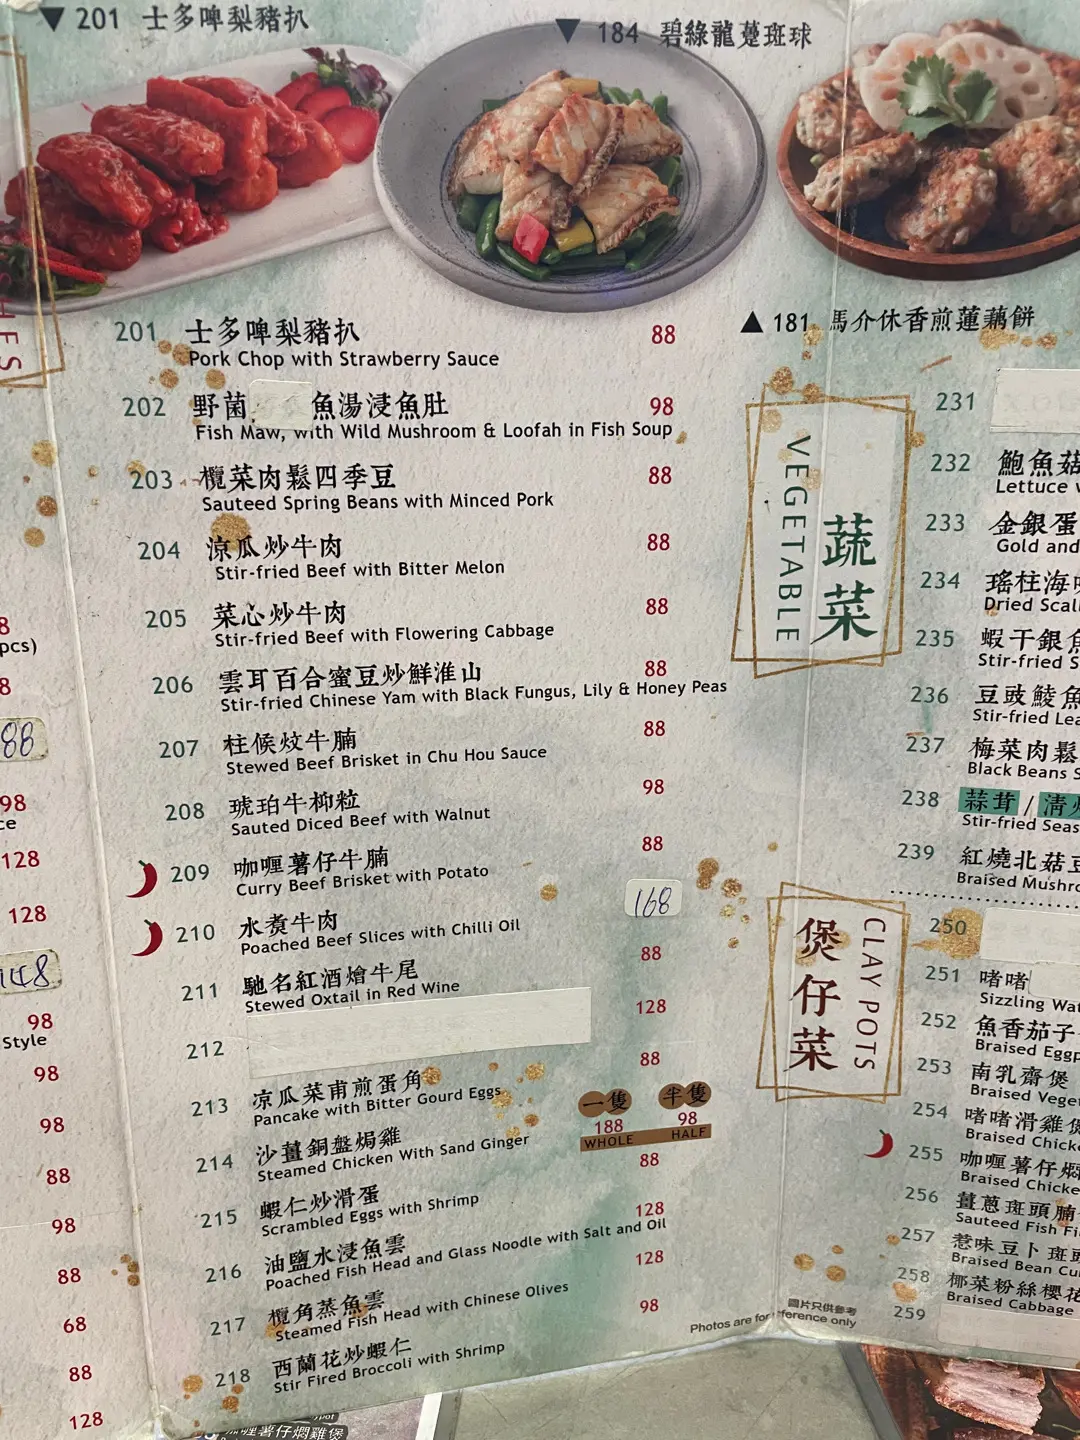 ▼ 201 士多啤梨豬扒
▼ 184 碧綠龍躉斑球
▲ 181 馬介休香煎蓮藕餅
HES
8
pcs)
8
88
98
ce
128
128
148
98
Style
98
98
88
98
88
68
88
128
201 士多啤梨豬扒 88
Pork Chop with Strawberry Sauce
202 野菌 魚湯浸魚肚 98
Fish Maw, with Wild Mushroom & Loofah in Fish Soup
203 欖菜肉鬆四季豆 88
Sauteed Spring Beans with Minced Pork
204 涼瓜炒牛肉 88
Stir-fried Beef with Bitter Melon
205 菜心炒牛肉 88
Stir-fried Beef with Flowering Cabbage
206 雲耳百合蜜豆炒鮮淮山 88
Stir-fried Chinese Yam with Black Fungus, Lily & Honey Peas
207 柱候炆牛腩 88
Stewed Beef Brisket in Chu Hou Sauce
208 琥珀牛柳粒 98
Sauted Diced Beef with Walnut
209 咖喱薯仔牛腩 88
Curry Beef Brisket with Potato
210 水煮牛肉 168
Poached Beef Slices with Chilli Oil
211 馳名紅酒燴牛尾 88
Stewed Oxtail in Red Wine
212 128
213 凉瓜菜甫煎蛋角 88
Pancake with Bitter Gourd Eggs
214 沙薑銅盤焗雞 一隻 半隻
188 98
WHOLE HALF
Steamed Chicken With Sand Ginger
215 蝦仁炒滑蛋 88
Scrambled Eggs with Shrimp
216 油鹽水浸魚雲 128
Poached Fish Head and Glass Noodle with Salt and Oil
217 欖角蒸魚雲 128
Steamed Fish Head with Chinese Olives
218 西蘭花炒蝦仁 98
Stir Fried Broccoli with Shrimp
蔬菜
VEGETABLE
231
232 鮑魚菇
Lettuce
233 金銀蛋
Gold and
234 瑤柱海
Dried Scal
235 蝦干銀魚
Stir-fried S
236 豆豉鯪魚
Stir-fried Lea
237 梅菜肉鬆
Black Beans S
238 蒜茸/清炒
Stir-fried Seas
239 紅燒北菇豆
Braised Mushro
煲仔菜
CLAY POTS
250
251 啫啫
Sizzling Wat
252 魚香茄子
Braised Eggp
253 南乳齋煲
Braised Veget
254 啫啫滑雞煲
Braised Chicke
255 咖喱薯仔燜
Braised Chicke
256 薑蔥斑頭腩
Sauteed Fish Fi
257 惹味豆卜斑頭
Braised Bean Cu
258 椰菜粉絲櫻花
Braised Cabbage
259
圖片只供參考
Photos are for reference only
咖喱薯仔燜雞煲